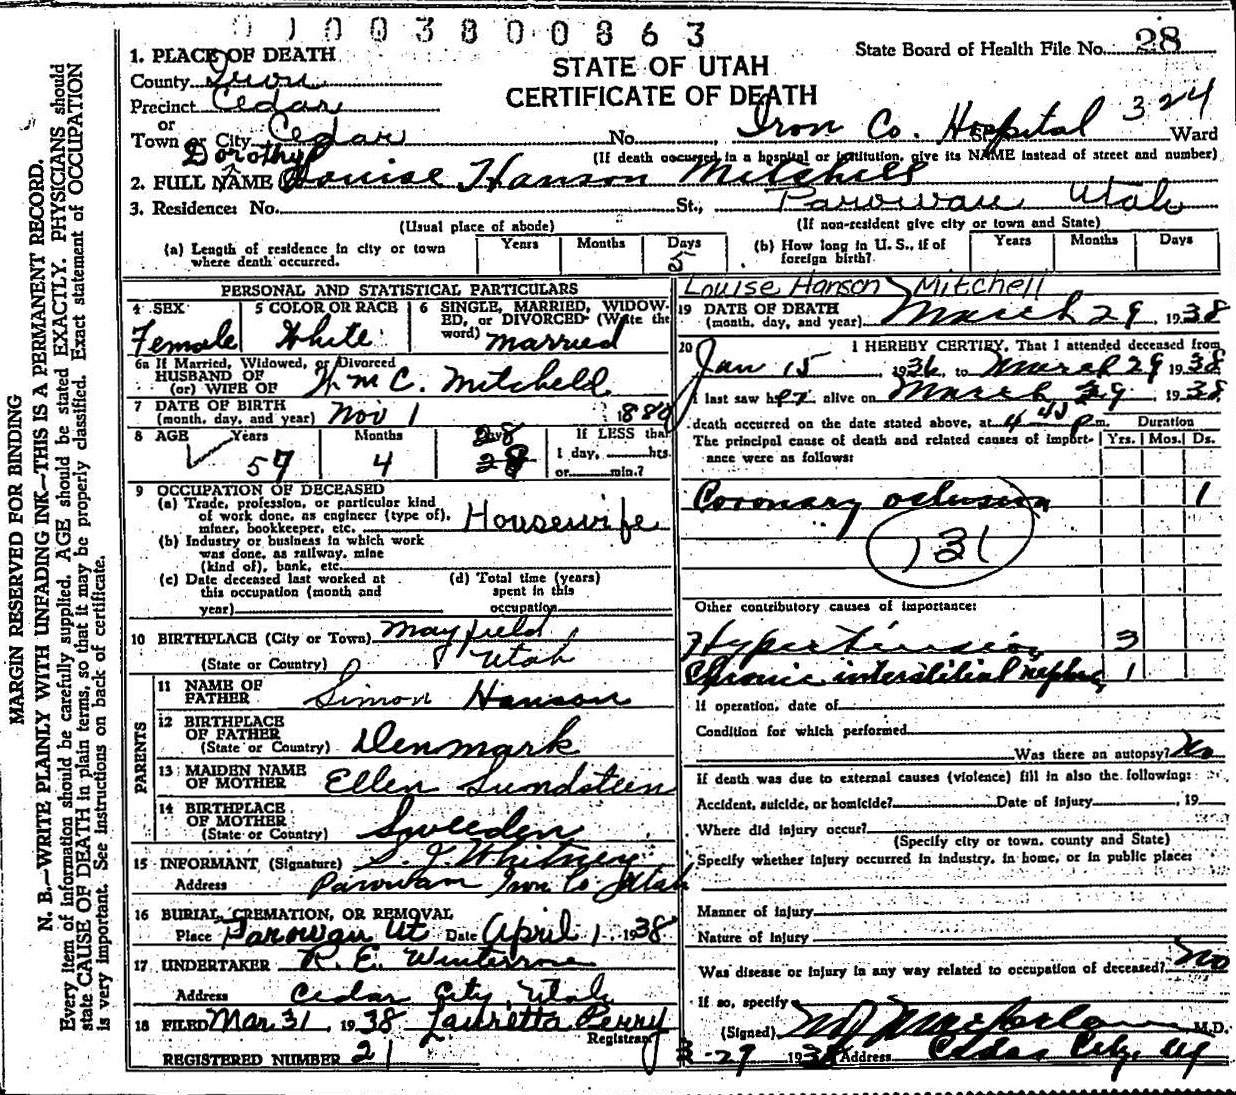 0 1 0 0 3 8 0 0 8 6 3
State Board of Health File No. 28
STATE OF UTAH
CERTIFICATE OF DEATH
324
1. PLACE OF DEATH
County Iron
Precinct Cedar
or
Town or City Cedar No. Iron Co. Hospital St. Ward
(If death occurred in a hospital or institution, give its NAME instead of street and number)
Dorothy
2. FULL NAME Louise Hanson Mitchell
3. Residence: No. St., Parowan Utah
(Usual place of abode) (If non-resident give city or town and State)
(a) Length of residence in city or town where death occurred. Years Months Days 5
(b) How long in U. S., if of foreign birth? Years Months Days
PERSONAL AND STATISTICAL PARTICULARS
4 SEX Female
5 COLOR OR RACE White
6 SINGLE, MARRIED, WIDOWED, or DIVORCED (Write the word) married
6a If Married, Widowed, or Divorced
HUSBAND OF
(or) WIFE OF Wm C. Mitchell
7 DATE OF BIRTH
(month, day, and year) Nov 1 1880
8 AGE Years 57 Months 4 Days 28
If LESS than
1 day, hrs.
or min.?
9 OCCUPATION OF DECEASED
(a) Trade, profession, or particular kind
of work done, as engineer (type of),
miner, bookkeeper, etc. Housewife
(b) Industry or business in which work
was done, as railway, mine
(kind of), bank, etc.
(c) Date deceased last worked at
this occupation (month and
year)
(d) Total time (years)
spent in this
occupation
10 BIRTHPLACE (City or Town) Mayfield
(State or Country) Utah
PARENTS
11 NAME OF
FATHER Simon Hanson
12 BIRTHPLACE
OF FATHER
(State or Country) Denmark
13 MAIDEN NAME
OF MOTHER Ellen Sundsteen
14 BIRTHPLACE
OF MOTHER
(State or Country) Sweeden
15 INFORMANT (Signature) S. J. Whitney
Address Parowan Iron Co Utah
16 BURIAL, CREMATION, OR REMOVAL
Place Parowan Ut Date April 1, 1938
17 UNDERTAKER R. E. Winterrose
Address Cedar City, Utah
18 FILED Mar 31, 1938 Lauretta Perry
Registrar
REGISTERED NUMBER 21
Louise Hanson Mitchell
19 DATE OF DEATH
(month, day, and year) March 29, 1938
20 I HEREBY CERTIFY, That I attended deceased from
Jan 15, 1936, to March 29 1938
I last saw her alive on March 29, 1938
death occurred on the date stated above, at 4 45 p m. Duration
The principal cause of death and related causes of importance were as follows: Yrs. Mos. Ds.
Coronary oclusion 1
131
Other contributory causes of importance:
Hypertension 3
Chronic interstitial nephri 1
If operation, date of
Condition for which performed
Was there an autopsy? No
If death was due to external causes (violence) fill in also the following:
Accident, suicide, or homicide? Date of injury , 19
Where did injury occur?
(Specify city or town, county and State)
Specify whether injury occurred in industry, in home, or in public place:
Manner of injury
Nature of injury
Was disease or injury in any way related to occupation of deceased? No
If so, specify
(Signed) M.D.
3-29 1938 Address Cedar City, Ut
MARGIN RESERVED FOR BINDING
N. B.—WRITE PLAINLY WITH UNFADING INK—THIS IS A PERMANENT RECORD.
Every item of information should be carefully supplied. AGE should be stated EXACTLY. PHYSICIANS should
state CAUSE OF DEATH in plain terms, so that it may be properly classified. Exact statement of OCCUPATION
is very important. See instructions on back of certificate.